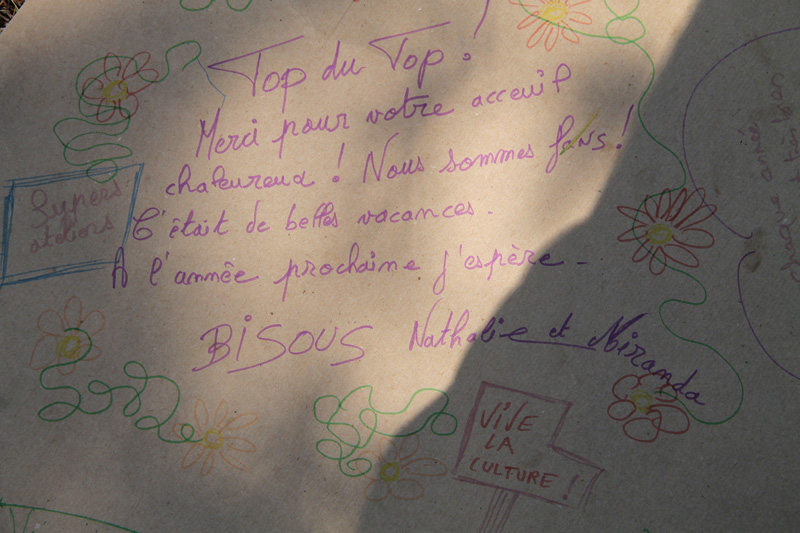 Top du Top !
Merci pour votre acceuil
chaleureux ! Nous sommes fans !
C'était de belles vacances.
A l'année prochaine j'espère -
BISOUS Nathalie et Miranda
Supers
ateliers
VIVE
LA
CULTURE !
chaque année